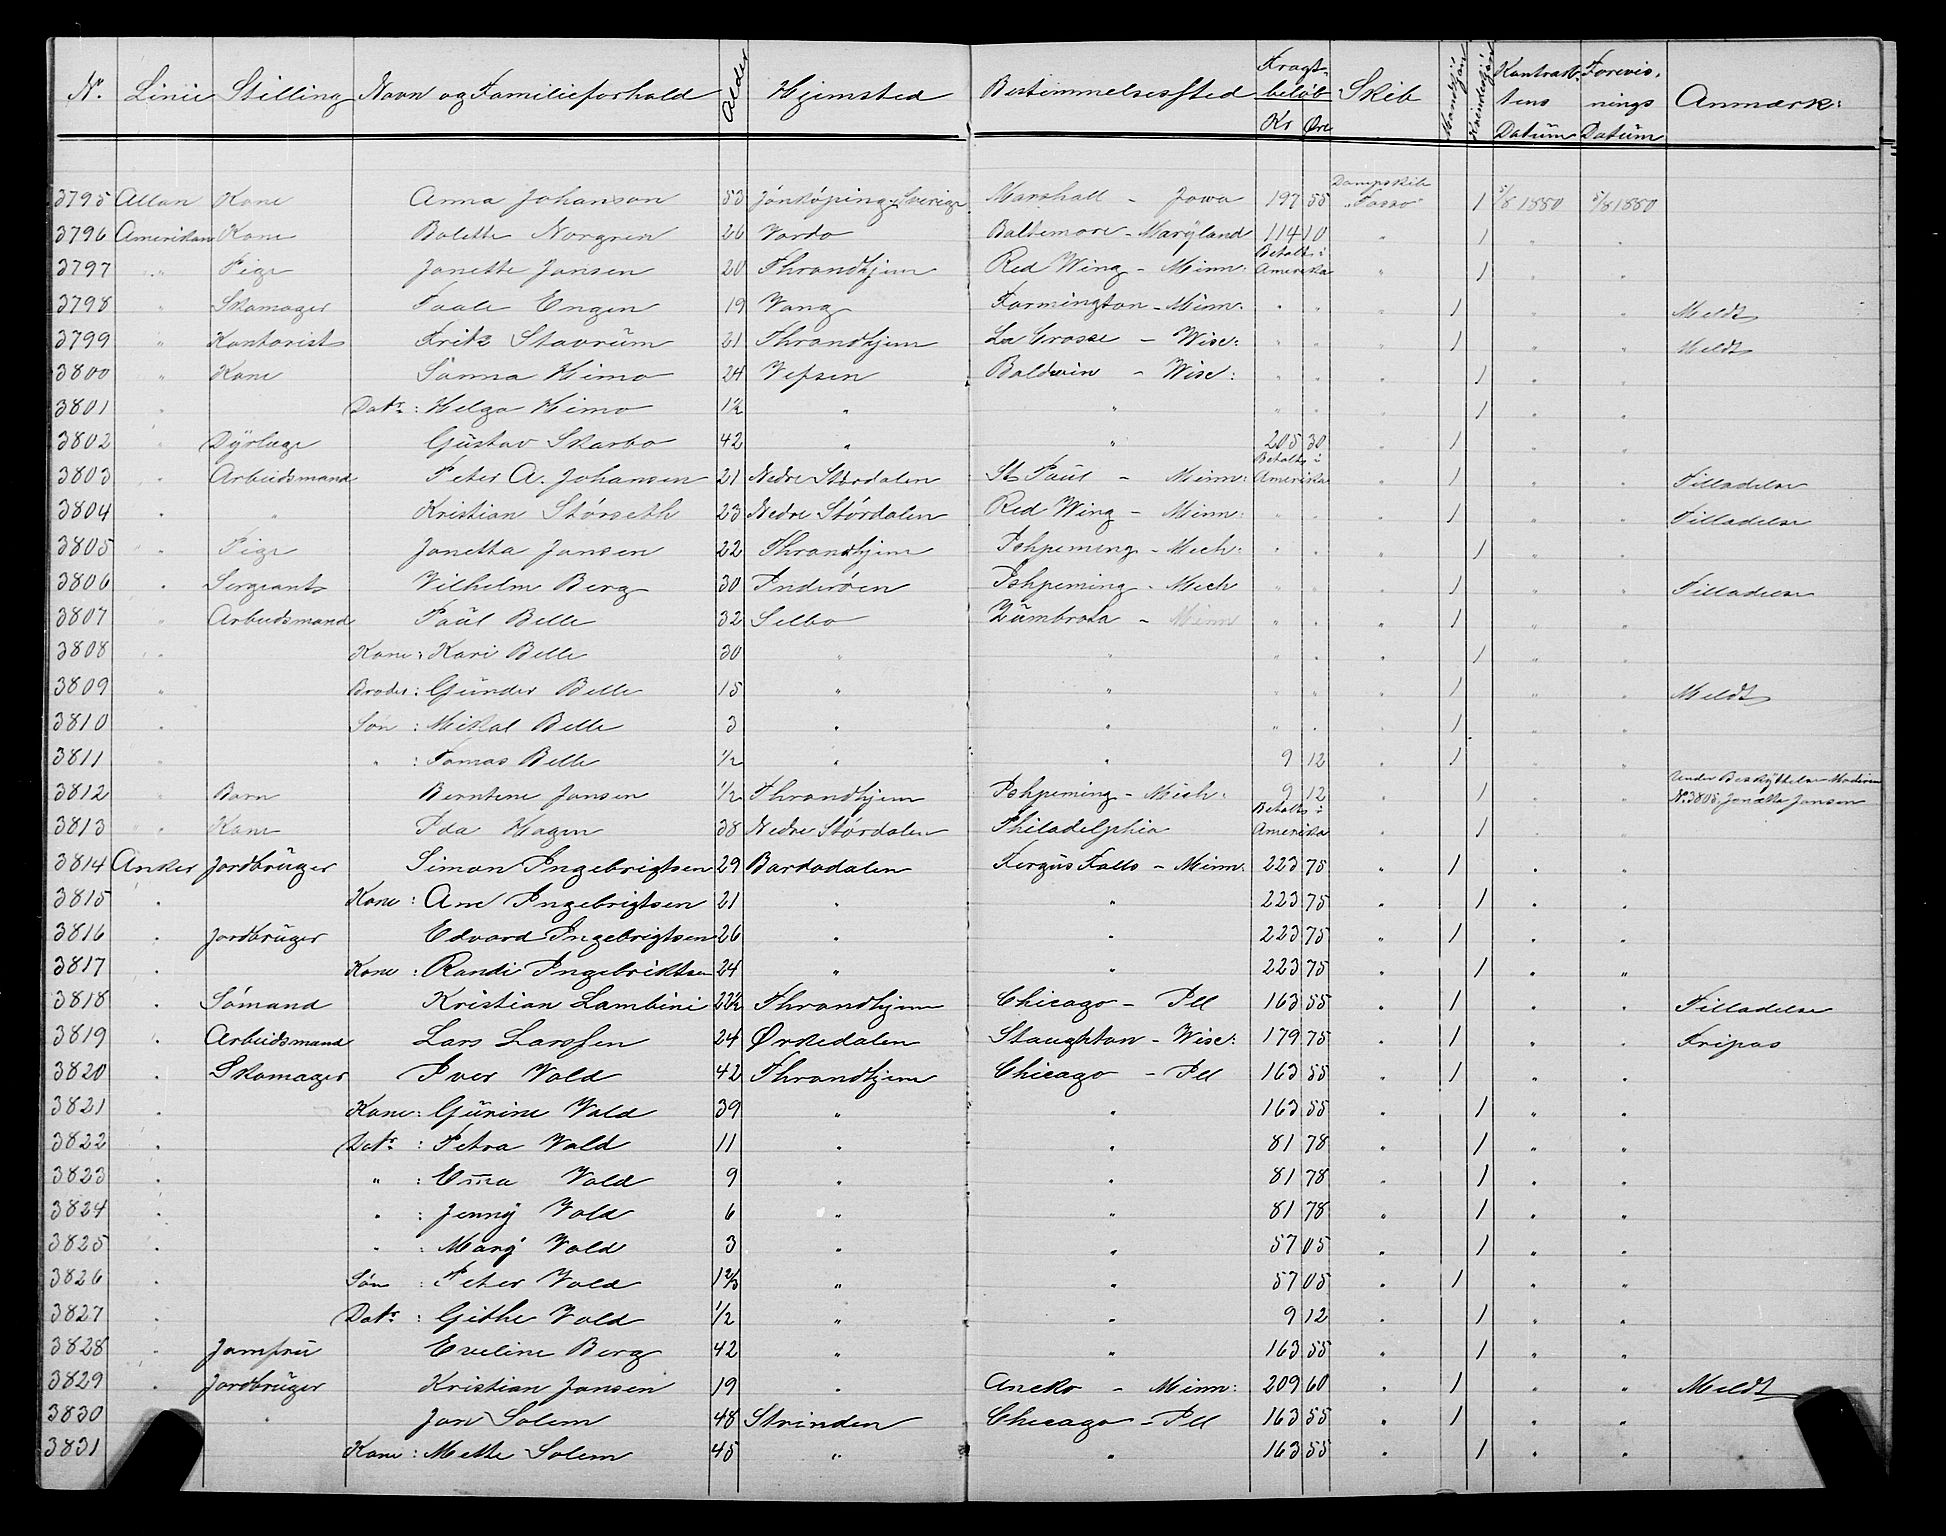 Nr. Linie Stilling Navn og Familieforhold Alder Hjemsted Bestemmelsessted Fragtbeløb Kr Øre Skib Mandkjøn Kvindekjøn Kontraktens Datum Forevisnings Datum Anmærk:
3795 Allan Kone Anna Johanson 53 Jönköping, Sverige Marshall - Jowa 197 55 Dampskib "Tasso" 1 5/8 1880 5/8 1880
3796 Amerikan Kone Bolette Norgren 26 Vardo Baltemore - Maryland 114 10 " 1 " "
3797 " Pige Janette Jansen 20 Thrandhjem Red Wing - Minn: Betalt i Amerika " 1 " "
3798 " Skomager Paale Engen 19 Vang Farmington - Minn: " " " 1 " " Meldt
3799 " Kontorist Fritz Stavrum 21 Thrandhjem La Crosse - Wisc: " " " 1 " " Meldt
3800 " Kone Sanna Himo 24 Vefsen Baldwin - Wisc: " " " 1 " "
3801 " Datr: Helga Himo 1½ " " " " " 1 " "
3802 " Dyrlæge Gustav Skarbo 42 " " 205 30 " 1 " "
3803 " Arbeidsmand Peter A. Johansen 21 Nedre Størdalen St Paul - Minn: Betalt i Amerika " 1 " " Tilladelse
3804 " " Kristian Størseth 23 Nedre Størdalen Red Wing - Minn: " " " 1 " " Tilladelse
3805 " Pige Janetta Jansen 22 Thrandhjem Ishpeming - Mich: " " " 1 " "
3806 " Sergeant Vilhelm Berg 30 Inderøen Ishpeming - Mich " " " 1 " " Tilladelse
3807 " Arbeidsmand Paul Belle 32 Selbo Zumbrota - Minn " " " 1 " "
3808 " Kone: Kari Belle 30 " " " " " 1 " "
3809 " Broder: Gunder Belle 15 " " " " " 1 " " Meldt
3810 " Søn: Mikal Belle 3 " " " " " 1 " "
3811 " " : Tomas Belle 1/2 " " 9 12 " 1 " "
3812 " Barn Berntine Jansen 1/2 Thrandhjem Ishpeming - Mich: 9 12 " 1 " " Under Beskyttelse Moderen Nr. 3805, Janetta Jansen
3813 " Kone Ida Hagen 38 Nedre Størdalen Philadelphia Betalt i Amerika " 1 " "
3814 Anker Jordbruger Simon Ingebrigtsen 29 Bardodalen Fergus Falls - Minn: 223 75 " 1 " "
3815 " Kone: Ane Ingebrigtsen 21 " " 223 75 " 1 " "
3816 " Jordbruger Edvard Ingebrigtsen 26 " " 223 75 " 1 " "
3817 " Kone: Randi Ingebriktsen 24 " " 223 75 " 1 " "
3818 " Sømand Kristian Lambini 22½ Thrandhjem Chicago - Ill 163 55 " 1 " " Tilladelse
3819 " Arbeidsmand Lars Larssen 24 Ørkedalen Staughton - Wisc: 179 75 " 1 " " Fripas
3820 " Skomager Iver Vold 42 Thrandhjem Chicago - Ill 163 55 " 1 " "
3821 " Kone: Gurine Vold 39 " " 163 55 " 1 " "
3822 " Datr: Petra Vold 11 " " 81 78 " 1 " "
3823 " " : Em̅a Vold 9 " " 81 78 " 1 " "
3824 " " : Jenny Vold 6 " " 81 78 " 1 " "
3825 " " : Mary Vold 3 " " 57 05 " 1 " "
3826 " Søn: Peter Vold 1 2/3 " " 57 05 " 1 " "
3827 " Datr: Githe Vold 1/2 " " 9 12 " 1 " "
3828 " Jomfru Eveline Berg 42 " " 163 55 " 1 " "
3829 " Jordbruger Kristian Jansen 19 " Aneko - Minn: 209 60 " 1 " " Meldt
3830 " Jon Solem 48 Strinden Chicago - Ill 163 55 " 1 " "
3831 Kone: Mette Solem 45 " " 163 55 " 1 " "